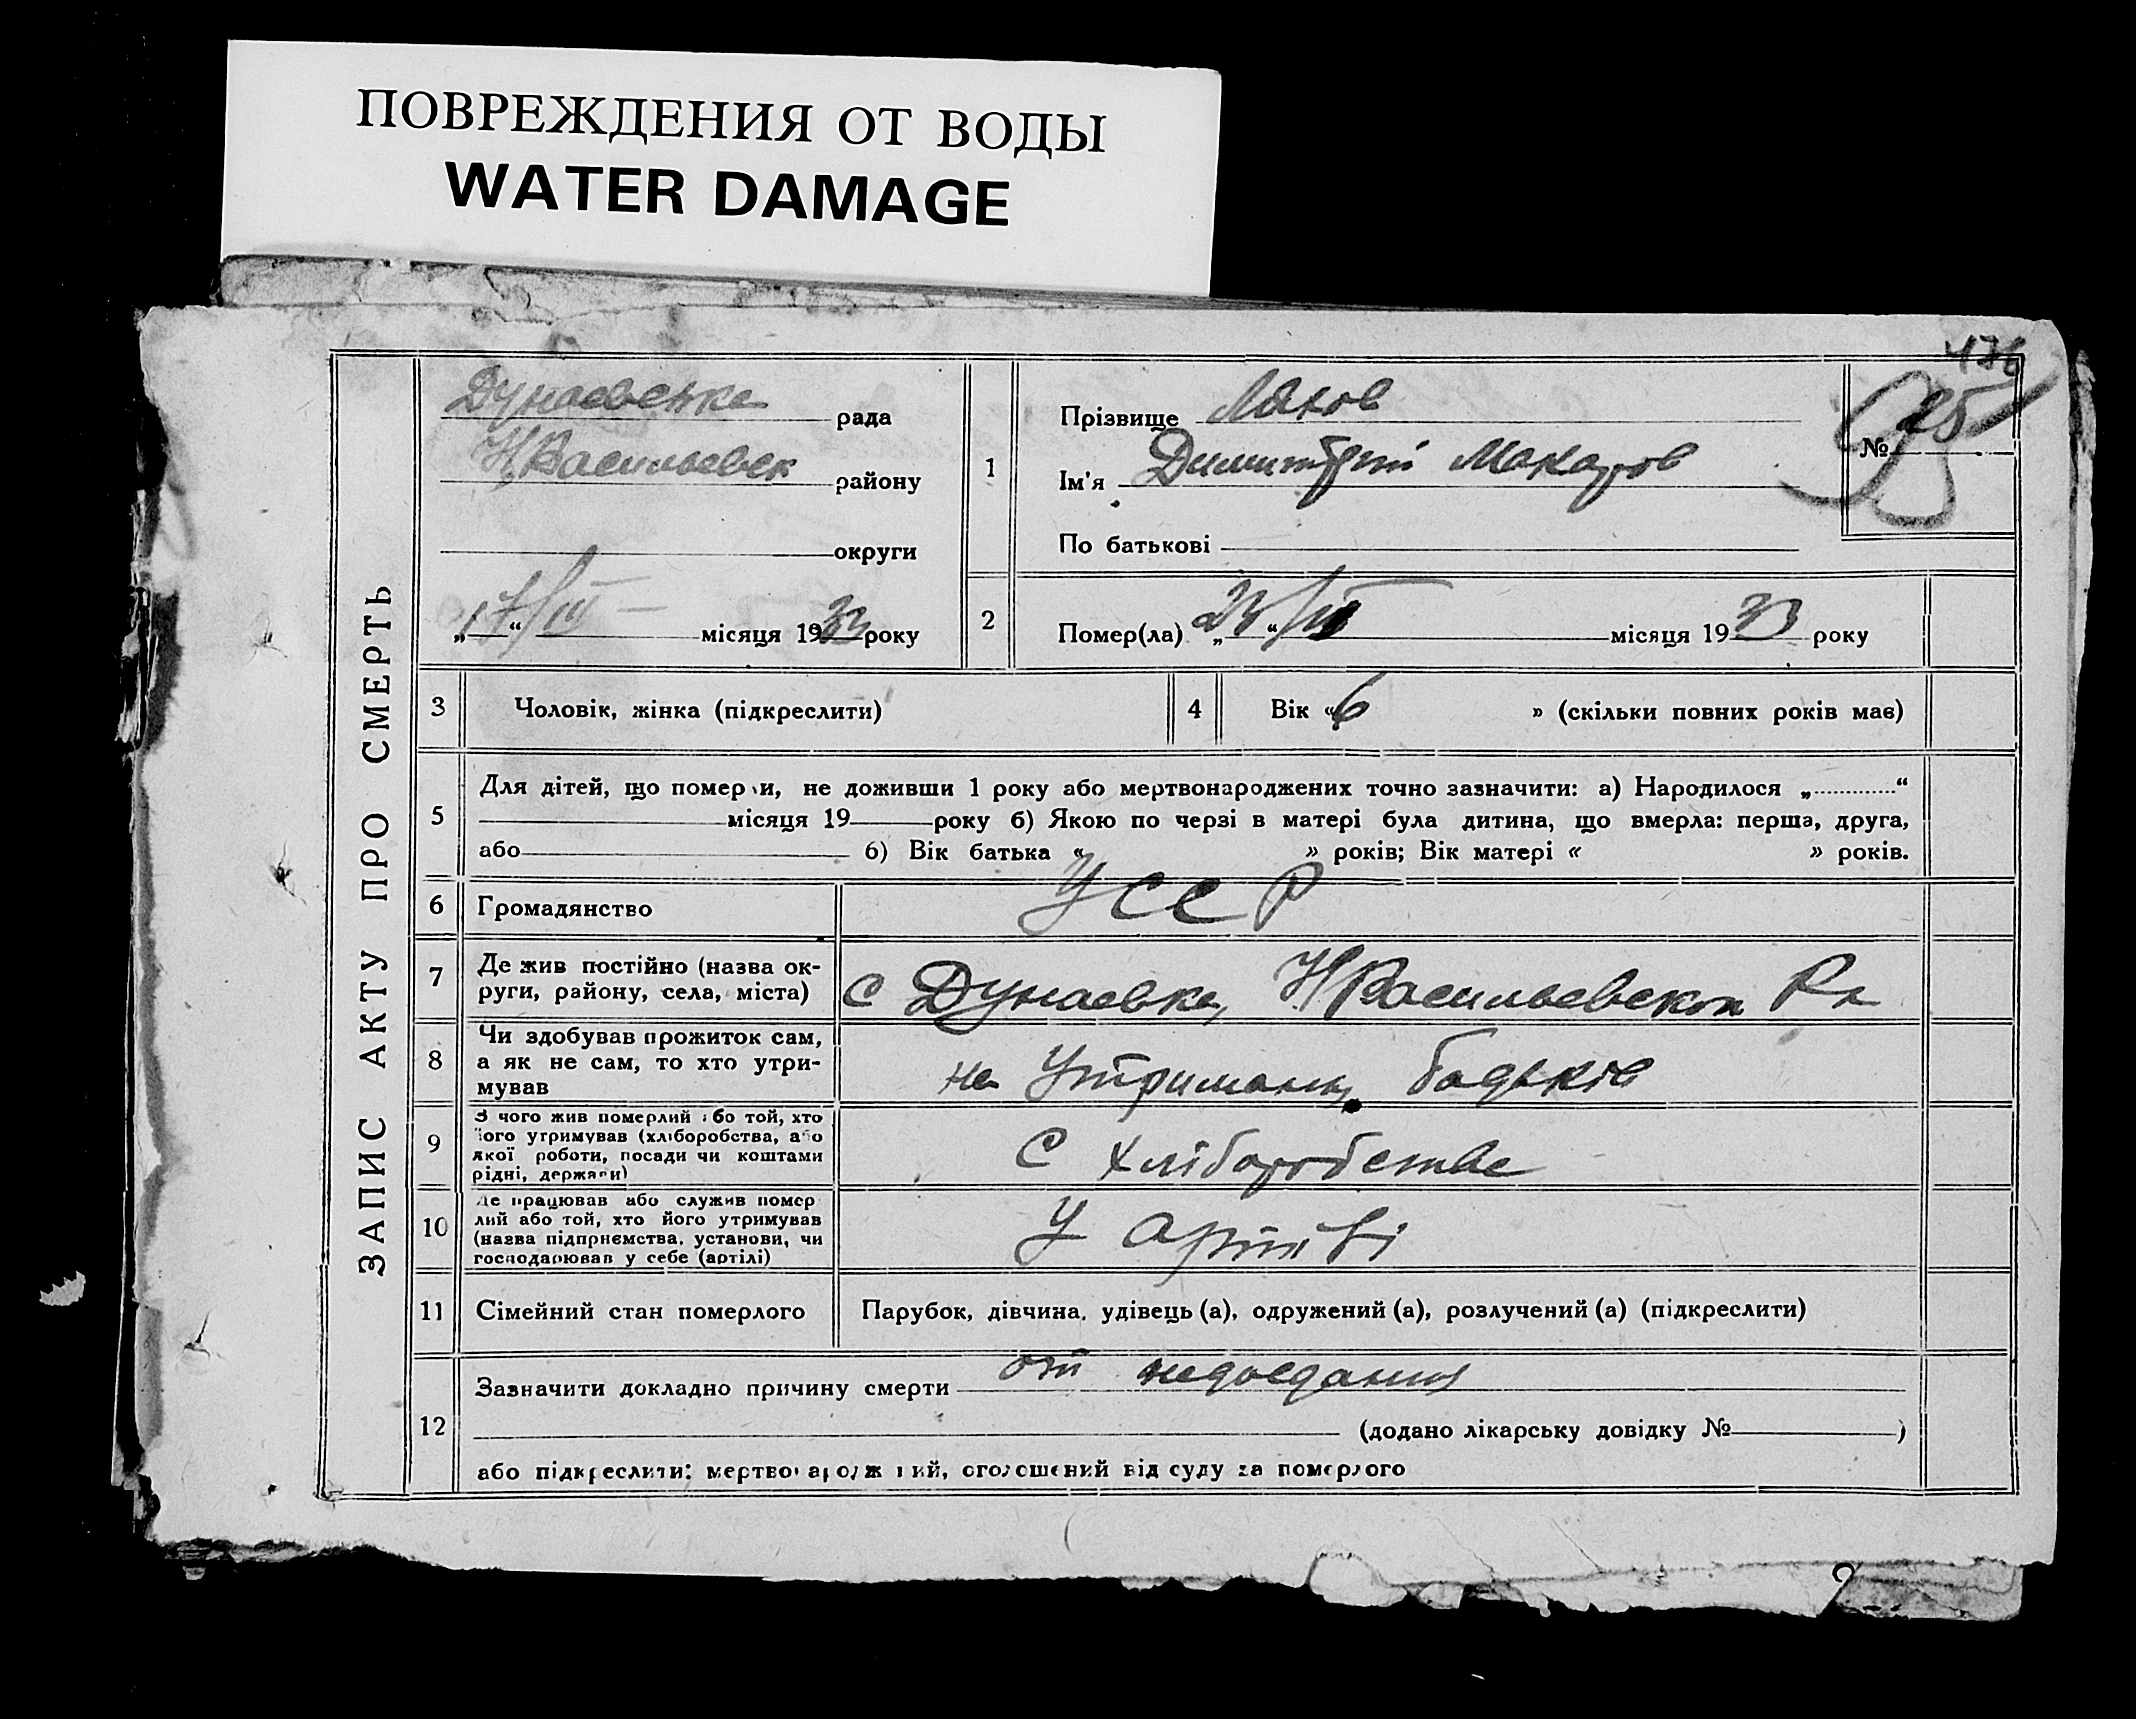 ПОВРЕЖДЕНИЯ ОТ ВОДЫ
WATER DAMAGE
476
ЗАПИС АКТУ ПРО СМЕРТЬ
Дунаевська рада
Н Васильевск району
округи
„17“/III — місяця 1933 року
1
Прізвище Ляхов
Ім'я Димитрий Макаров
По батькові
№ 25
2
Помер(ла) „23“/III місяця 1933 року
3 Чоловік, жінка (підкреслити)
4 Вік «6 » (скільки повних років має)
5
Для дітей, що померли, не доживши 1 року або мертвонароджених точно зазначити: а) Народилося „ “
місяця 19 року б) Якою по черзі в матері була дитина, що вмерла: перша, друга,
або б) Вік батька « » років; Вік матері « » років.
6 Громадянство УССР
7 Де жив постійно (назва ок-
руги, району, села, міста) с Дунаевка, Н Васильевскоп Рн
8 Чи здобував прожиток сам,
а як не сам, то хто утри-
мував на Утриманн батьків
9 З чого жив померлий або той, хто
його утримував (хліборобства, або
якої роботи, посади чи коштами
рідні, держави) С хліборобства
10 Де працював або служив помер
лий або той, хто його утримував
(назва підприємства, установи, чи
господарював у себе (артілі) У артілі
11 Сімейний стан померлого Парубок, дівчина, удівець (а), одружений (а), розлучений (а) (підкреслити)
12
Зазначити докладно причину смерти от недоедания
(додано лікарську довідку № )
або підкреслити: мертвонароджений, оголошений від суду за померлого